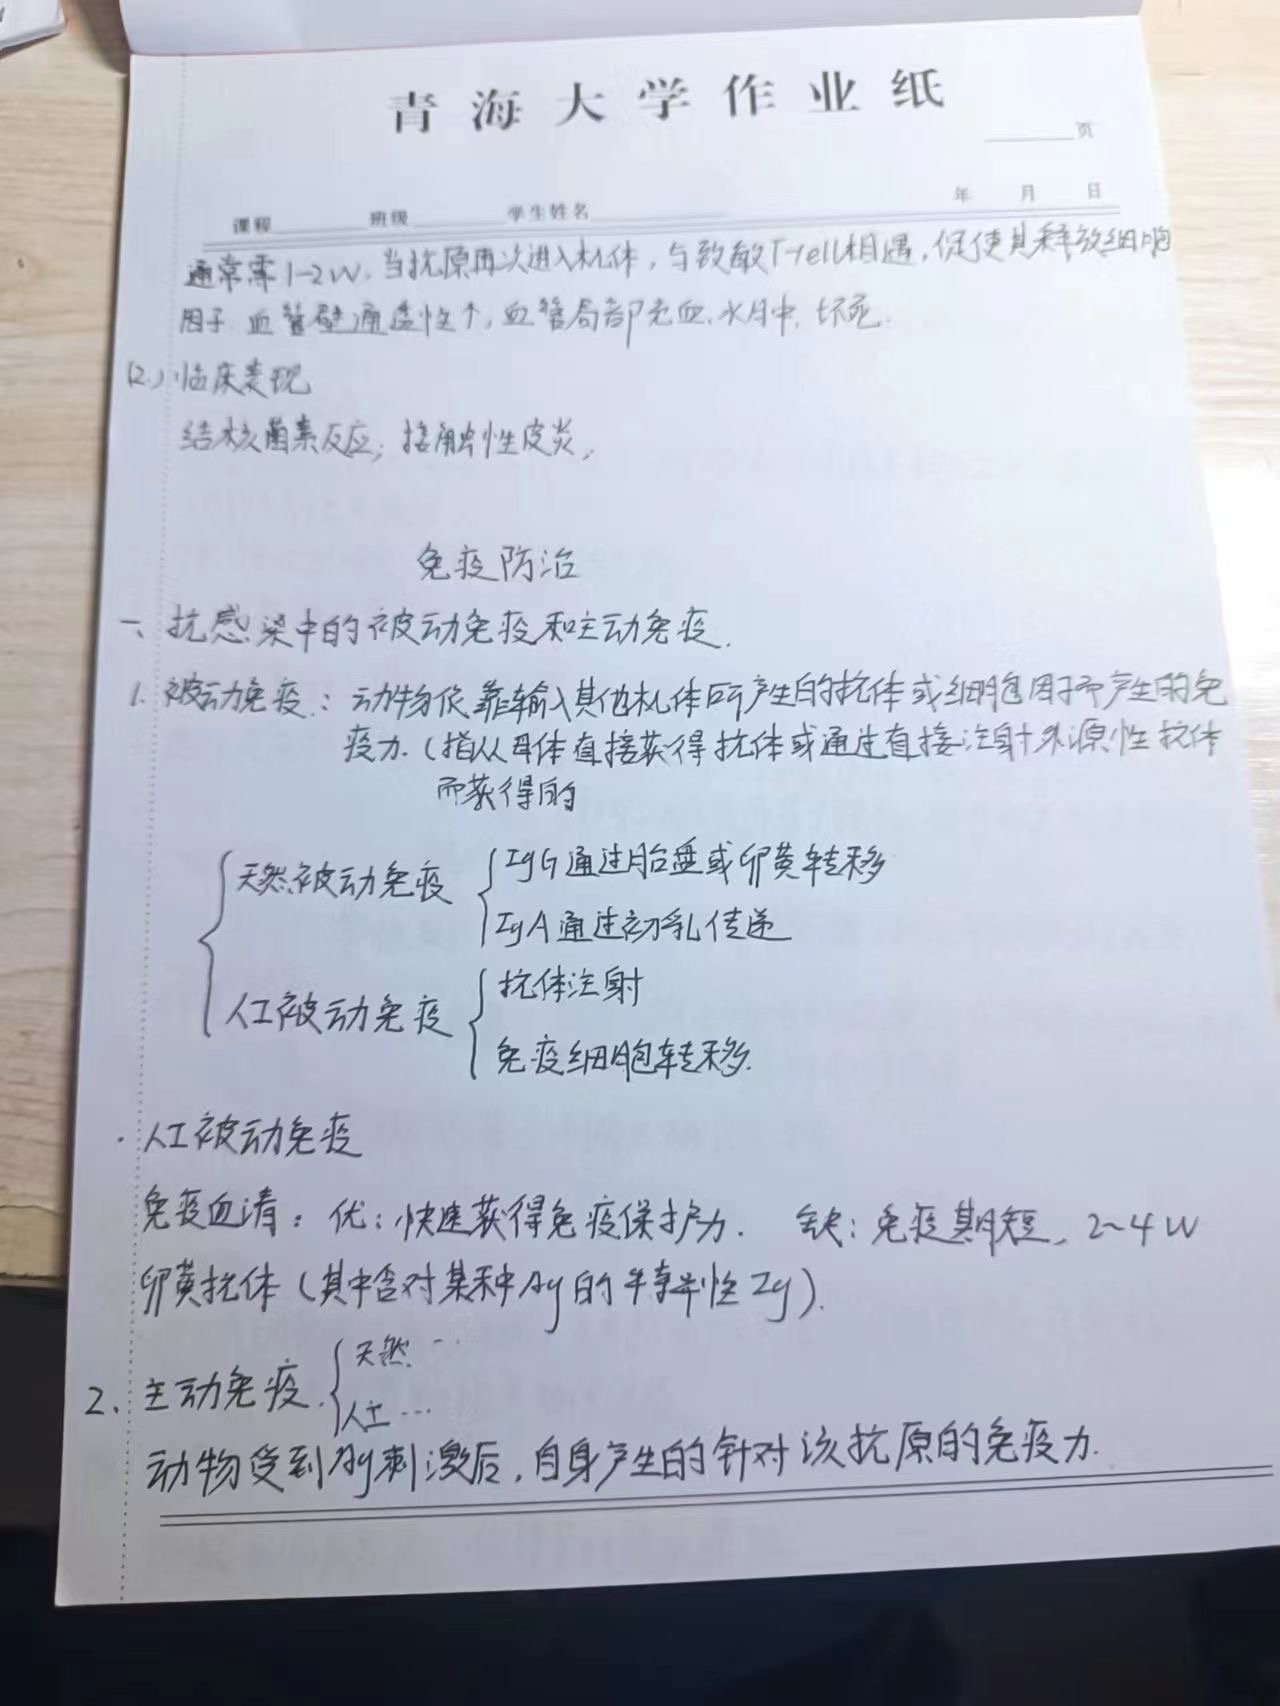 青海大学作业纸
页
年 月 日
课程 班级 学生姓名
通常需1-2W,当抗原再次进入机体,与致敏T-cell相遇,促使其释放细胞
因子 血管壁通透性↑,血管局部充血、水肿、坏死.
(2.)临床表现
结核菌素反应;接触性皮炎,
免疫防治
一、抗感染中的被动免疫和主动免疫.
1. 被动免疫:动物依靠输入其他机体所产生的抗体或细胞因子而产生的免
疫力.(指从母体直接获得抗体或通过直接注射外源性抗体
而获得的
天然被动免疫
IgG通过胎盘或卵黄转移
IgA通过初乳传递
人工被动免疫
抗体注射
免疫细胞转移.
·人工被动免疫
免疫血清:优:快速获得免疫保护力. 缺:免疫期短,2~4W
卵黄抗体(其中含对某种Ag的特异性Ig).
2、主动免疫.
天然…
人工…
动物受到Ag刺激后,自身产生的针对该抗原的免疫力.